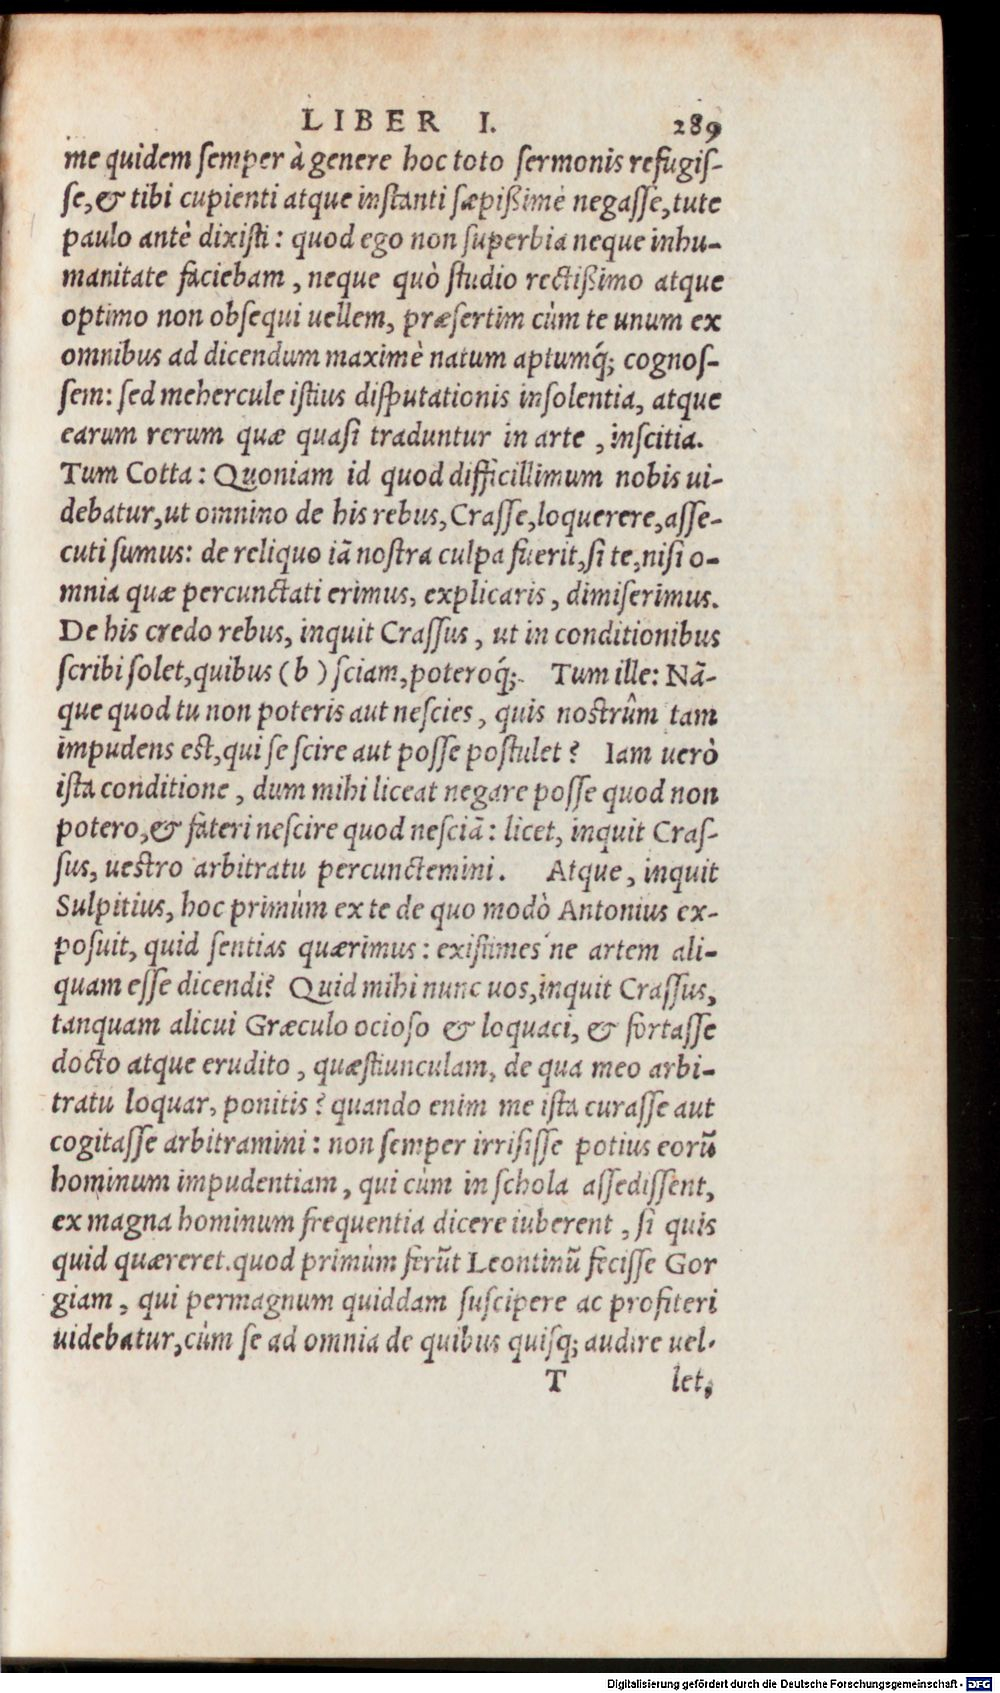 LIBER I. 289
me quidem semper à genere hoc toto sermonis refugis-
se, & tibi cupienti atque instanti sæpißimè negasse, tute
paulo antè dixisti: quod ego non superbia neque inhu-
manitate faciebam, neque quò studio rectißimo atque
optimo non obsequi uellem, præsertim cùm te unum ex
omnibus ad dicendum maximè natum aptumq́; cognos-
sem: sed mehercule istius disputationis insolentia, atque
earum rerum quæ quasi traduntur in arte, inscitia.
Tum Cotta: Quoniam id quod difficillimum nobis ui-
debatur, ut omnino de his rebus, Crasse, loquerere, asse-
cuti sumus: de reliquo iã nostra culpa fuerit, si te, nisi o-
mnia quæ percunctati erimus, explicaris, dimiserimus.
De his credo rebus, inquit Crassus, ut in conditionibus
scribi solet, quibus (b) sciam, poteroq́;. Tum ille: Nã-
que quod tu non poteris aut nescies, quis nostrûm tam
impudens est, qui se scire aut posse postulet? Iam uerò
ista conditione, dum mihi liceat negare posse quod non
potero, & fateri nescire quod nesciã: licet, inquit Cras-
sus, uestro arbitratu percunctemini. Atque, inquit
Sulpitius, hoc primùm ex te de quo modò Antonius ex-
posuit, quid sentias quærimus: existimes´ne artem ali-
quam esse dicendi? Quid mihi nunc uos, inquit Crassus,
tanquam alicui Græculo ocioso & loquaci, & fortasse
docto atque erudito, quæstiunculam, de qua meo arbi-
tratu loquar, ponitis? quando enim me ista curasse aut
cogitasse arbitramini: non semper irrisisse potius eorũ
hominum impudentiam, qui cùm in schola assedissent,
ex magna hominum frequentia dicere iuberent, si quis
quid quæreret. quod primùm ferũt Leontinũ fecisse Gor
giam, qui permagnum quiddam suscipere ac profiteri
uidebatur, cùm se ad omnia de quibus quisq; audire uel-
T let,
Digitalisierung gefördert durch die Deutsche Forschungsgemeinschaft - DFG